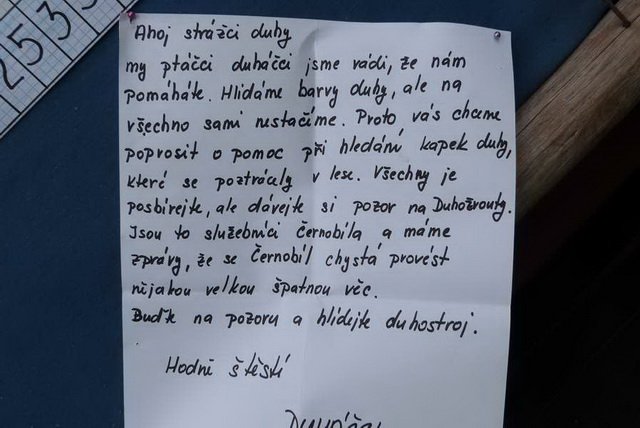 2535
Ahoj strážci duhy
my ptáčci duháčci jsme rádi, že nám
pomáháte. Hlídáme barvy duhy, ale na
všechno sami nestačíme. Proto vás chceme
poprosit o pomoc při hledání kapek duhy,
které se poztrácely v lese. Všechny je
posbírejte, ale dávejte si pozor na Duhožrouty.
Jsou to služebníci Černobíla a máme
zprávy, že se Černobíl chystá provést
nějakou velkou špatnou věc.
Buďte na pozoru a hlídejte duhostroj.
Hodně štěstí